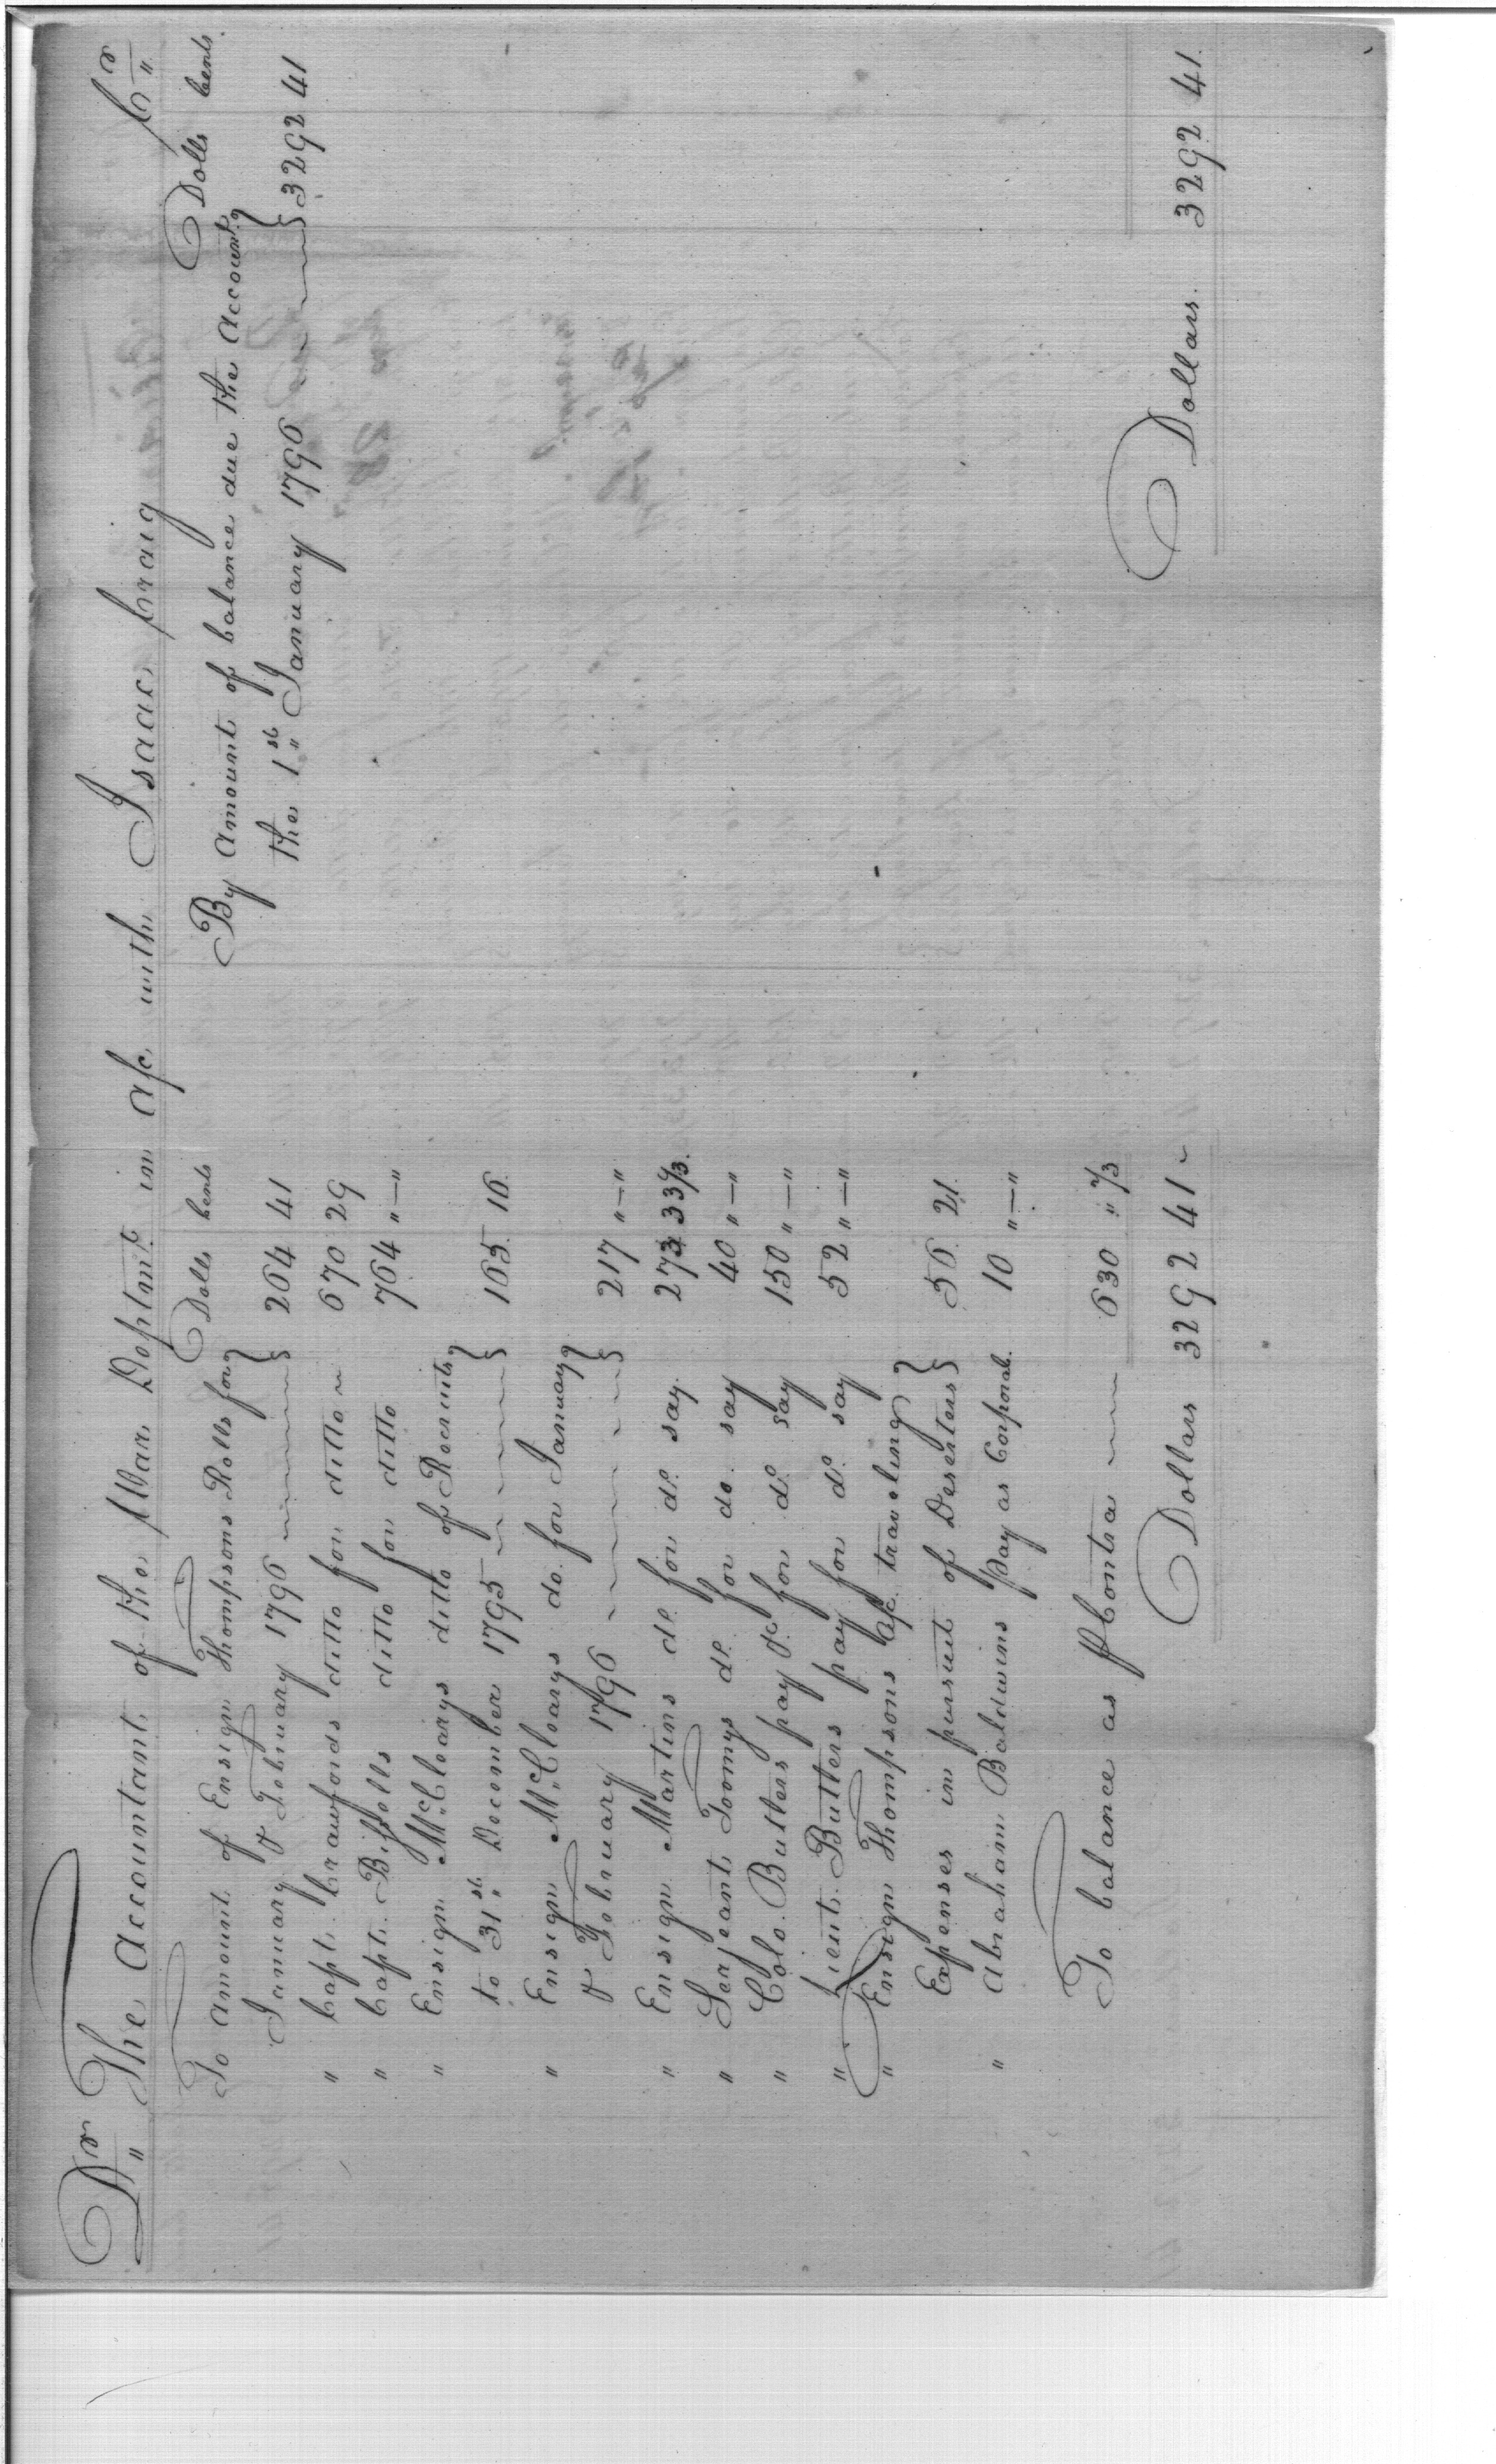 Dr The Accountant of the War Deptmt. in a/c with Isaac Craig Cr
Dolls Cents
To amount of Ensign Thompsons Rolls for
January & February 1796 264 41
" Capt. Crawfords ditto for ditto 670 29
" Capt. Bissells ditto for ditto 764 "—"
" Ensign McClearys ditto of Recruits
to 31st December 1795 165 16
" Ensign McClearys do. for January
& February 1796 217 "—"
" Ensign Martins do. for do. say 273 33 1/3
" Serjeant Toomys do. for do. say 40 "—"
" Colo. Butlers pay &c for do. say 150 "—"
" Lieut. Butlers pay for do. say 52 "—"
" Ensign Thompsons a/c traveling
Expenses in pursuit of Deserters 56 21
" Abraham Baldwins pay as Corporal 10 "—"
To balance as Contra 630 " 2/3
Dollars 3292 41
Dolls Cents
By amount of balance due the Accountt.
the 1st January 1796 3292 41
Dollars 3292 41